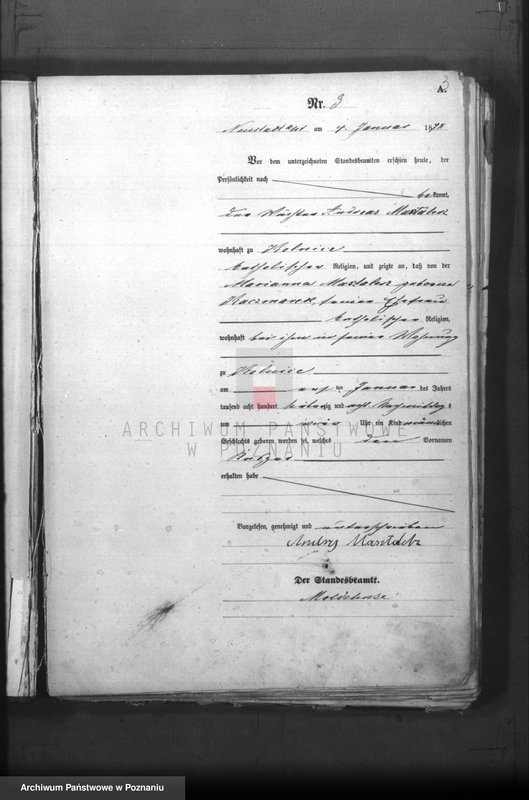 3
A.
Nr. 3
am 4 Januar 1878
Vor dem unterzeichneten Standesbeamten erschien heute, der
Persönlichkeit nach
bekannt,
der Andreas
wohnhaft zu
katholischer Religion, und zeigte an, daß von der
Marianna geborene
Kaczmarek, seiner Ehefrau
katholischer Religion,
wohnhaft bei ihm in seiner Wohnung
zu
am ten Januar des Jahres
tausend acht hundert siebenzig und acht Nachmittags
Uhr ein Kind männlichen
Geschlechts geboren worden sei, welches den Vornamen
erhalten habe
ARCHIWUM PAŃSTWOWE
W POZNANIU
Vorgelesen, genehmigt und unterschrieben
Der Standesbeamte.
Archiwum Państwowe w Poznaniu